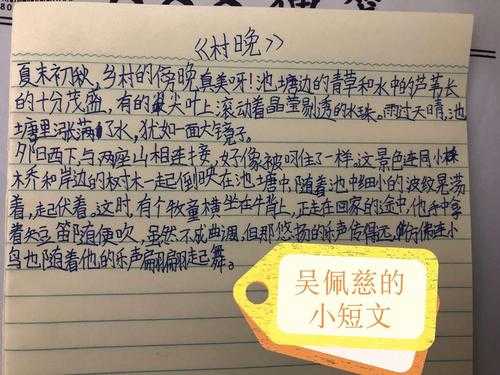 《村晚》
夏末初秋,乡村的傍晚真美呀!池塘边的青草和水中的芦苇长
的十分茂盛,有的尖叶上滚动着晶莹剔透的水珠。雨过天晴,池
塘里涨满了水,犹如一面大镜子。
夕阳西下,与两座山相连接,好像被咬住了一样。这景色连同小
木桥和岸边的树木一起倒映在池塘中,随着池中细小的波纹晃荡
着,起伏着。这时,有个牧童横坐在牛背上,正走在回家的途中,他手中拿
着短笛随便吹,虽然不成曲调,但那悠扬的乐声传得远,连小
鸟也随着他的乐声翩翩起舞。
吴佩慈的
小短文